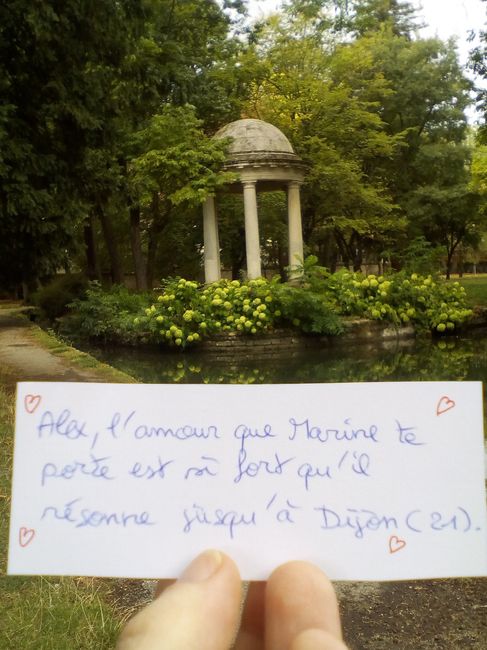 Alex, l'amour que Marine te
porte est si fort qu'il
résonne jusqu'à Dijon (21).